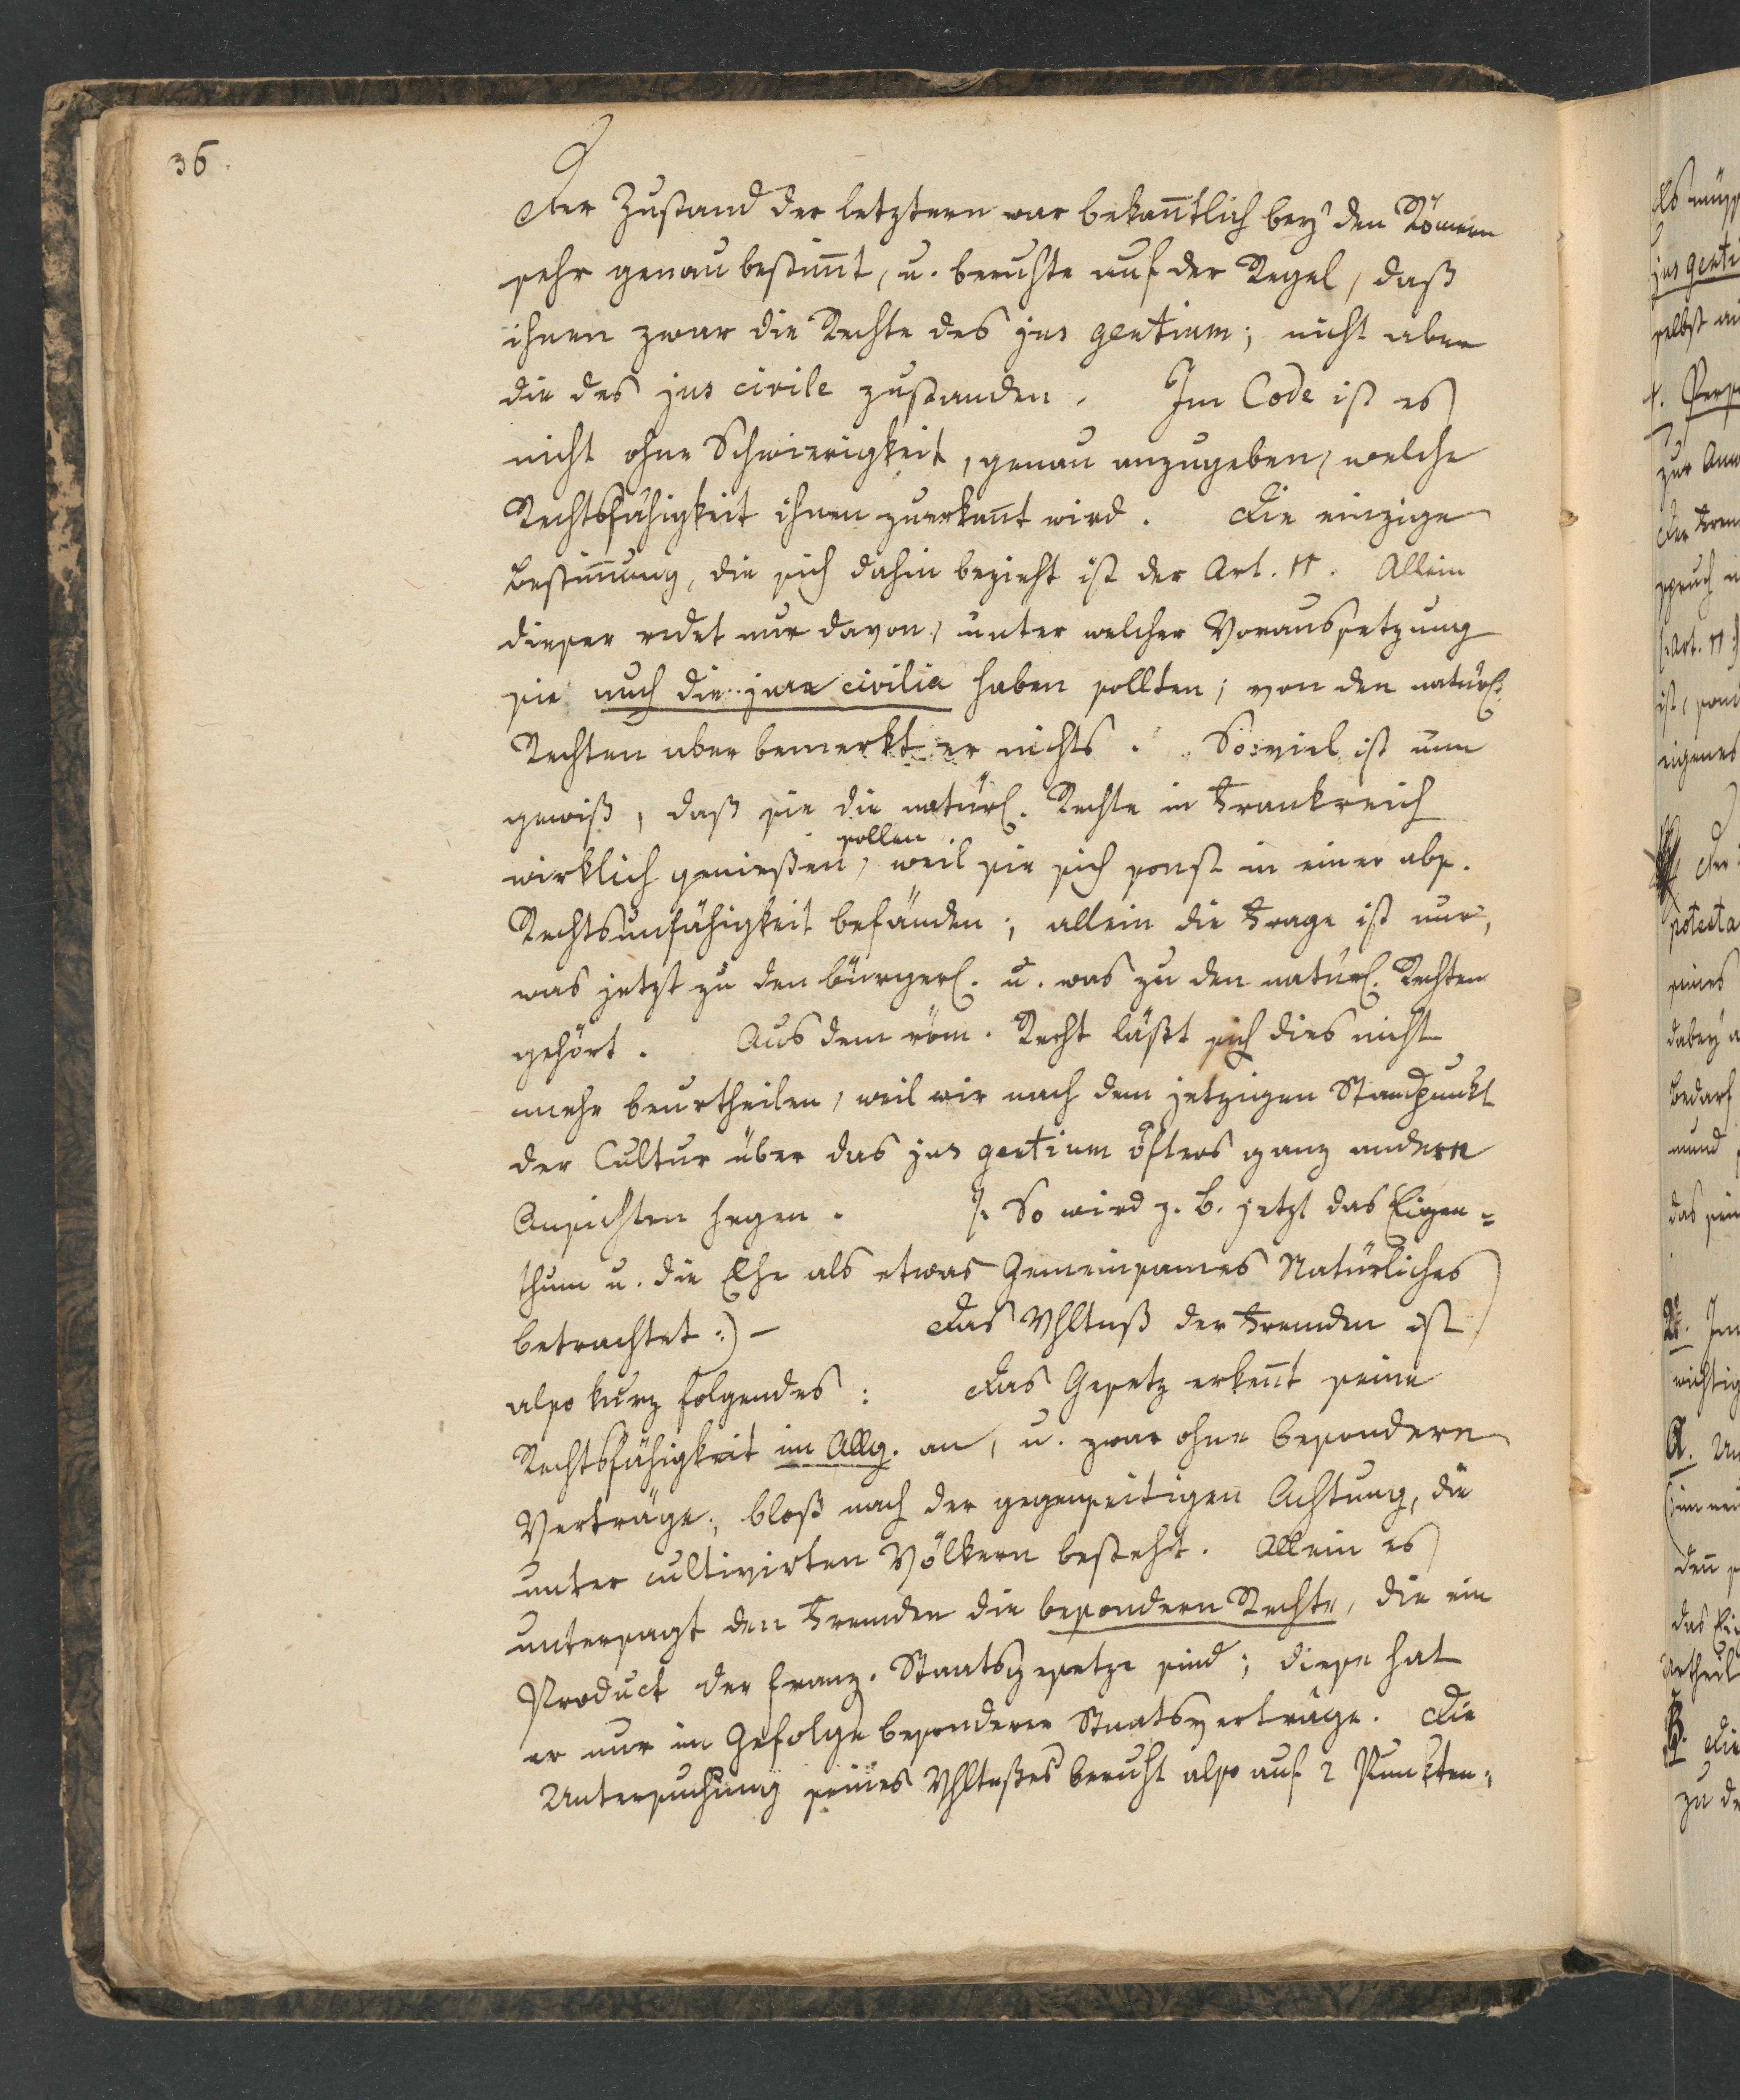 36.
Der Zustand der letztern war bekañtlich bey den Römern
sehr genau bestim̃t, u. beruhte auf der Regel, daß
ihnen zwar die Rechte des jus gentium; nicht aber
die des jus civile zustanden. Im Code ist es
nicht ohne Schwierigkeit, genau anzugeben, welche
Rechtsfähigkeit ihnen zuerkañt wird. Die einzige
Bestim̃ung, die sich dahin bezieht ist der Art. 11. Allein
dieser redet nur davon, unter welcher Voraussetzung
sie auch die jura civilia haben sollten; von den natürl.
Rechten aber bemerkt er nichts. So viel ist nun
gewiß, daß sie die natürl. Rechte in Frankreich
sollen
wirklich genießen, weil sie sich sonst in einer abs.
Rechtsunfähigkeit befänden; allein die Frage ist nur,
was jetzt zu den bürgerl. u. was zu den natürl. Rechten
gehört. Aus dem röm. Recht läßt sich dies nicht
mehr beurtheilen, weil wir nach dem jetzigen Standpunkt
der Cultur über das jus gentium öfters ganz andere
Ansichten hegen. (: So wird z. B. jetzt das Eigen=
thum u. die Ehe als etwas Gemeinsames Natürliches
betrachtet :) – Das Vhltnß der Fremden ist
also kurz folgendes: Das Gesetz erkeñt seine
Rechtsfähigkeit im Allg. an, u. zwar ohne besondere
Verträge, bloß nach der gegenseitigen Achtung, die
unter cultivirten Völkern besteht. Allein es
untersagt den Fremden die besondern Rechte, die ein
Product der franz. Staatsgesetze sind; diese hat
er nur im Gefolge besonderer Staatsverträge. Die
Untersuchung seines Vhltnßes beruht also auf 2 Punkten: